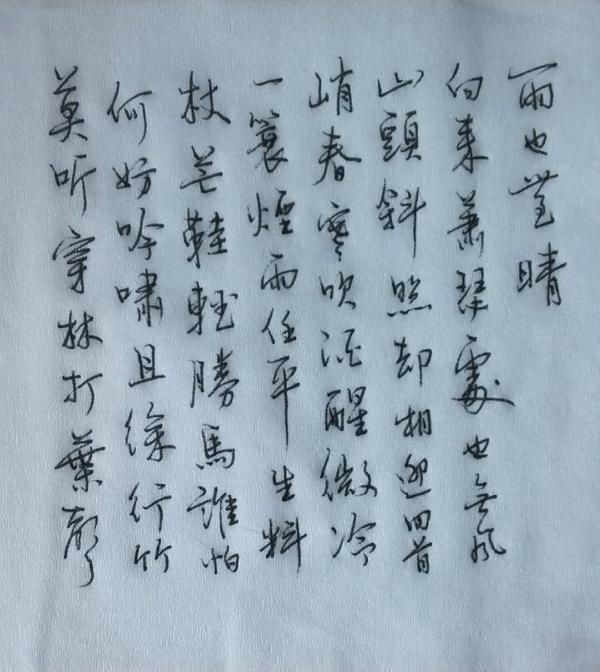 莫听穿林打葉聲
何妨吟嘯且徐行竹
杖芒鞋輕勝馬誰怕
一蓑煙雨任平生料
峭春寒吹酒醒微冷
山頭斜照却相迎回首
向来蕭瑟處也無風
雨也無晴